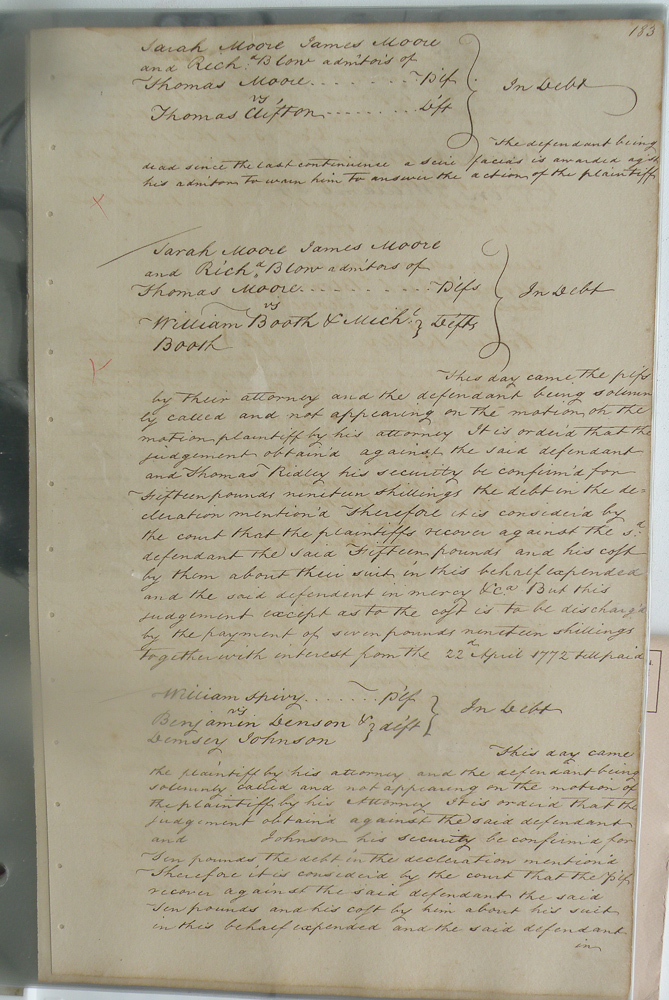 183
Sarah Moore James Moore
and Richd. Blow admtors of
Thomas Moore . . . . . . . Plf
vs
Thomas Clifton . . . . . . . Dft
In Debt
The defendant being
dead since the last continuence a scire facias is awarded agst
his admtor to warn him to answer the action of the plaintiff
Sarah Moore James Moore
and Richd. Blow admtors of
Thomas Moore . . . . . . . . . . Plfs
vs
William Booth & Michl. Defts
Booth
In Debt
This day came the plfs
by their attorney and the defendant being solemn
ly called and not appearing on the motion oh the
motion plaintiff by his attorney It is order'd that the
judgement obtain'd against the said defendant
and Thomas Ridley his security be confirm'd for
Fifteen pounds nineteen shillings the debt in the de-
cleration mention'd Therefore it is consider'd by
the court that the plaintiffs recover against the sd.
defendant the said Fifteen pounds and his cost
by them about their suit in this behalf expended
and the said defendent in mercy &ca But this
judgement except as to the cost is to be discharg'd
by the payment of seven pounds nineteen shillings
together with interest from the 22d April 1772 till paid
William Spivy . . . . . . . Plf
vs
Benjamin Denson & dift
Demsey Johnson
In Debt
This day came
the plaintiff by his attorney and the defendant being
solemnly called and not appearing on the motion of
the plaintiff by his Attorney It is order'd that the
judgement obtain'd against the said defendant
and Johnson his security be confirm'd for
Ten pounds the debt in the decleration mention'd
Therefore it is consider'd by the court that the Plf
recover against the said defendant the said
Ten pounds and his cost by him about his suit
in this behalf expended and the said defendant
in